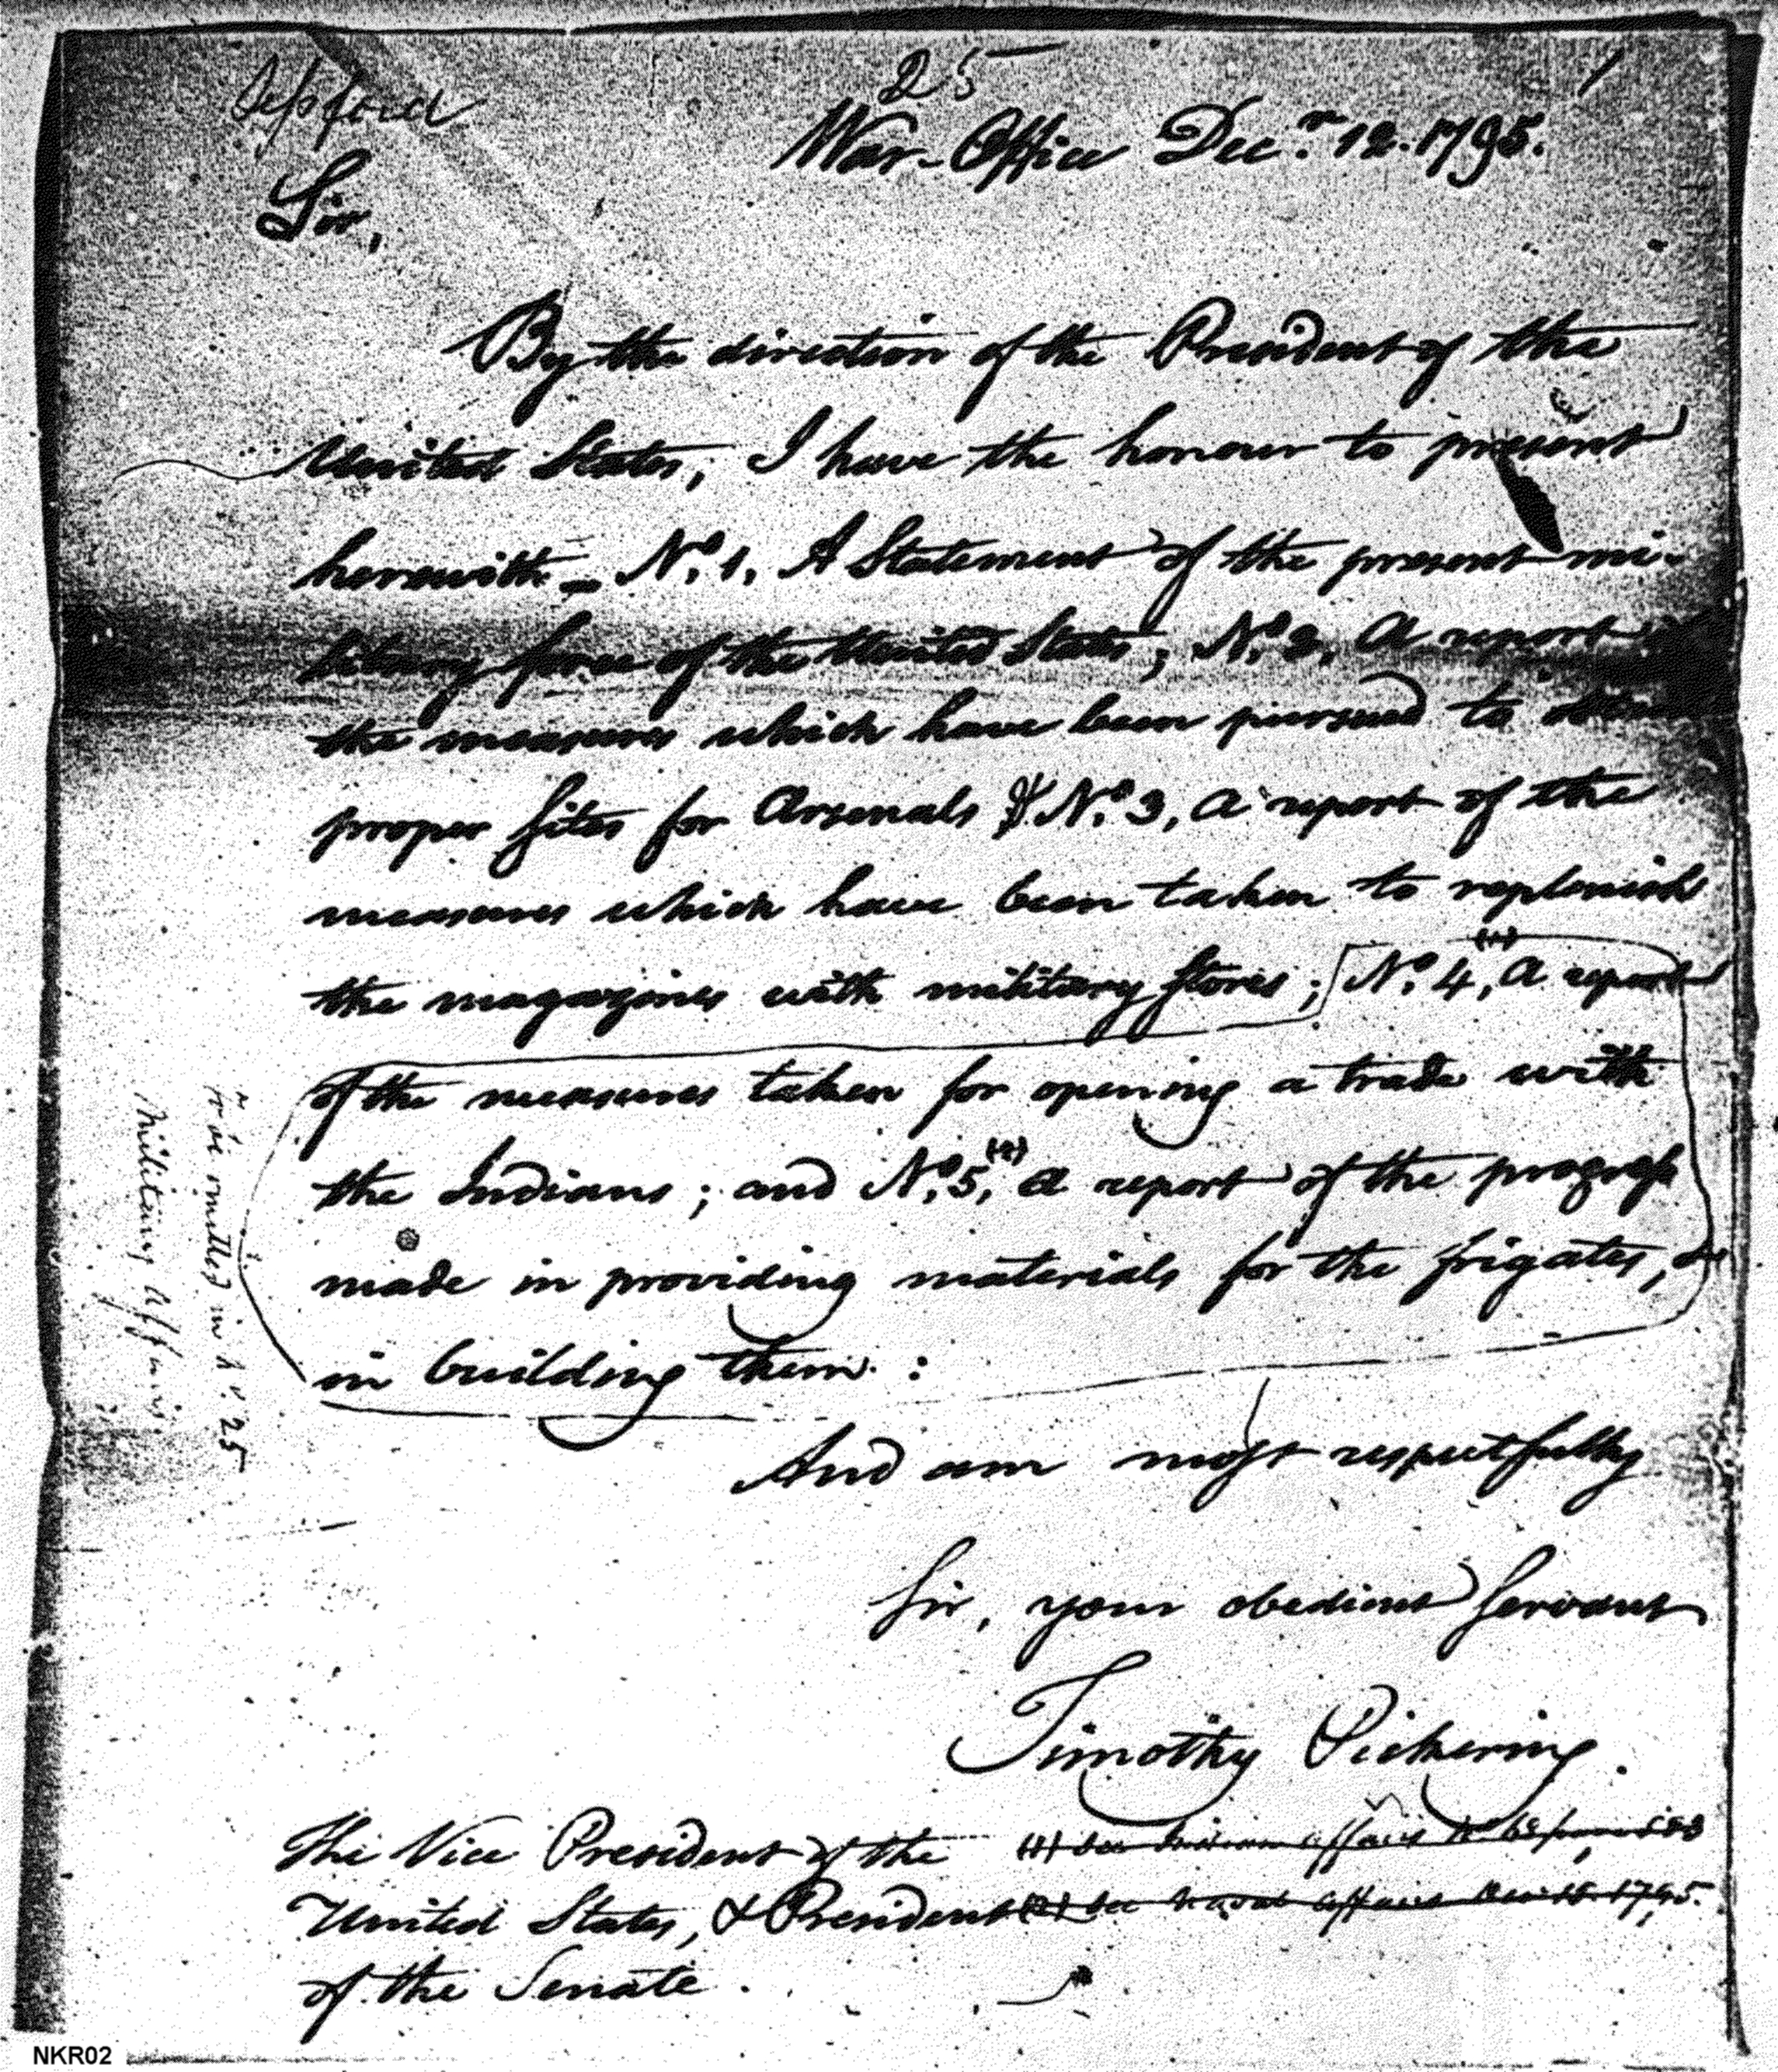 25
1
War-Office Decr. 12. 1795.
Sir,
By the direction of the President of the
United States, I have the honour to present
herewith - No. 1, A Statement of the present mi-
litary force of the United States; No. 2, A report
the measures which have been pursued to obtain
proper sites for Arsenals; No. 3, a report of the
measures which have been taken to replenish
the magazines with military stores; No. 4,(1) a report
of the measures taken for opening a trade with
the Indians; and No. 5,(2) a report of the progress
made in providing materials for the frigates, &
in building them. :
And am most respectfully
Sir, your obedient servant
Timothy Pickering.
The Vice President of the
United States, & President (2) See Naval Affairs Dec 12 1795.
of the Senate.
to be omitted in No. 25
Military Affairs
NKR02